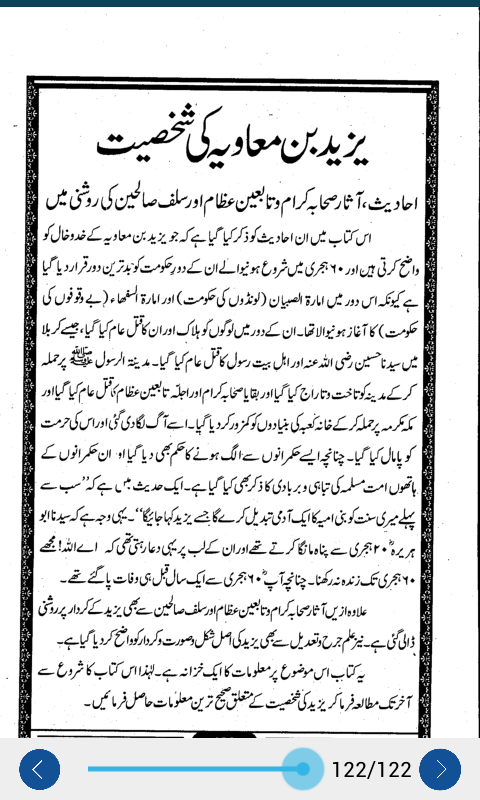 یزید بن معاویہ کی شخصیت
احادیث، آثار صحابہ کرام و تابعین عظام اور سلف صالحین کی روشنی میں
اس کتاب میں ان احادیث کو ذکر کیا گیا ہے کہ جو یزید بن معاویہ کے خدوخال کو
واضح کرتی ہیں اور ۶۰ ہجری میں شروع ہونیوالے ان کے دور حکومت کو بدترین دور قرار دیا گیا
ہے کیونکہ اس دور میں امارۃ الصبیان (لونڈوں کی حکومت) اور امارۃ السفھاء (بے وقوفوں کی
حکومت) کا آغاز ہونیوالا تھا۔ ان کے دور میں لوگوں کو ہلاک اور ان کا قتل عام کیا گیا، جیسے کربلا
میں سیدنا حسین رضی اللہ عنہ اور اہل بیت رسول کا قتل عام کیا گیا۔ مدینۃ الرسول ﷺ پر حملہ
کرکے مدینہ کو تاخت و تاراج کیا گیا اور بقایا صحابہ کرام اور اجلہ تابعین عظام کا قتل عام کیا گیا اور
مکہ مکرمہ پر حملہ کر کے خانہ کعبہ کی بنیادوں کو کمزور کر دیا گیا۔ اسے آگ لگا دی گئی اور اس کی حرمت
کو پامال کیا گیا۔ چنانچہ ایسے حکمرانوں سے الگ ہونے کا حکم بھی دیا گیا اور ان حکمرانوں کے
ہاتھوں امت مسلمہ کی تباہی و بربادی کا ذکر بھی کیا گیا ہے۔ ایک حدیث میں ہے کہ "سب سے
پہلے میری سنت کو بنی امیہ کا ایک آدمی تبدیل کرے گا جسے یزید کہا جائیگا"۔ یہی وجہ ہے کہ سیدنا ابو
ہریرہؓ ۲۰ ہجری سے پناہ مانگا کرتے تھے اور ان کے لب پر یہی دعا رہتی تھی کہ اے اللہ! مجھے
۶۰ ہجری تک زندہ نہ رکھنا۔ چنانچہ آپؓ ۶۰ ہجری سے ایک سال قبل ہی وفات پا گئے تھے۔
علاوہ ازیں آثار صحابہ کرام و تابعین عظام اور سلف صالحین سے بھی یزید کے کردار پر روشنی
ڈالی گئی ہے۔ نیز علم جرح و تعدیل سے بھی یزید کی اصل شکل و صورت و کردار کو واضح کر دیا گیا ہے۔
یہ کتاب اس موضوع پر معلومات کا ایک خزانہ ہے۔ لہٰذا اس کتاب کا شروع سے
آخر تک مطالعہ فرما کر یزید کی شخصیت کے متعلق صحیح ترین معلومات حاصل فرمائیں۔
122/122